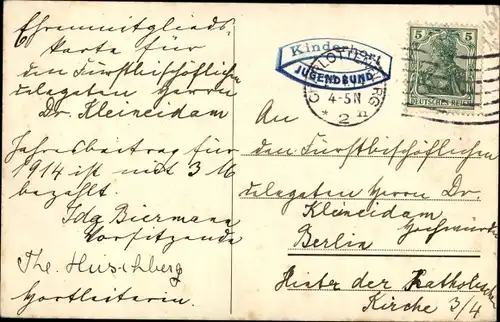 Ehrenmitglieds-
karte für
den Fürstbischöflichen
Delegaten Herrn
Dr. Kleineidam
Jahresbeitrag für
1914 ist mit 3 M
bezahlt.
Ida Biermann
Vorsitzende
The. Hirschberg
Hortleiterin
Kinderhort
JUGENDBUND
CHARLOTTENBURG
4-5N
* 2 h
5 5
DEUTSCHES REICH
An
den Fürstbischöflichen
Delegaten Herrn Dr.
Kleineidam
Hochwürden
Berlin
Hinter der Katholischen
Kirche 3/4